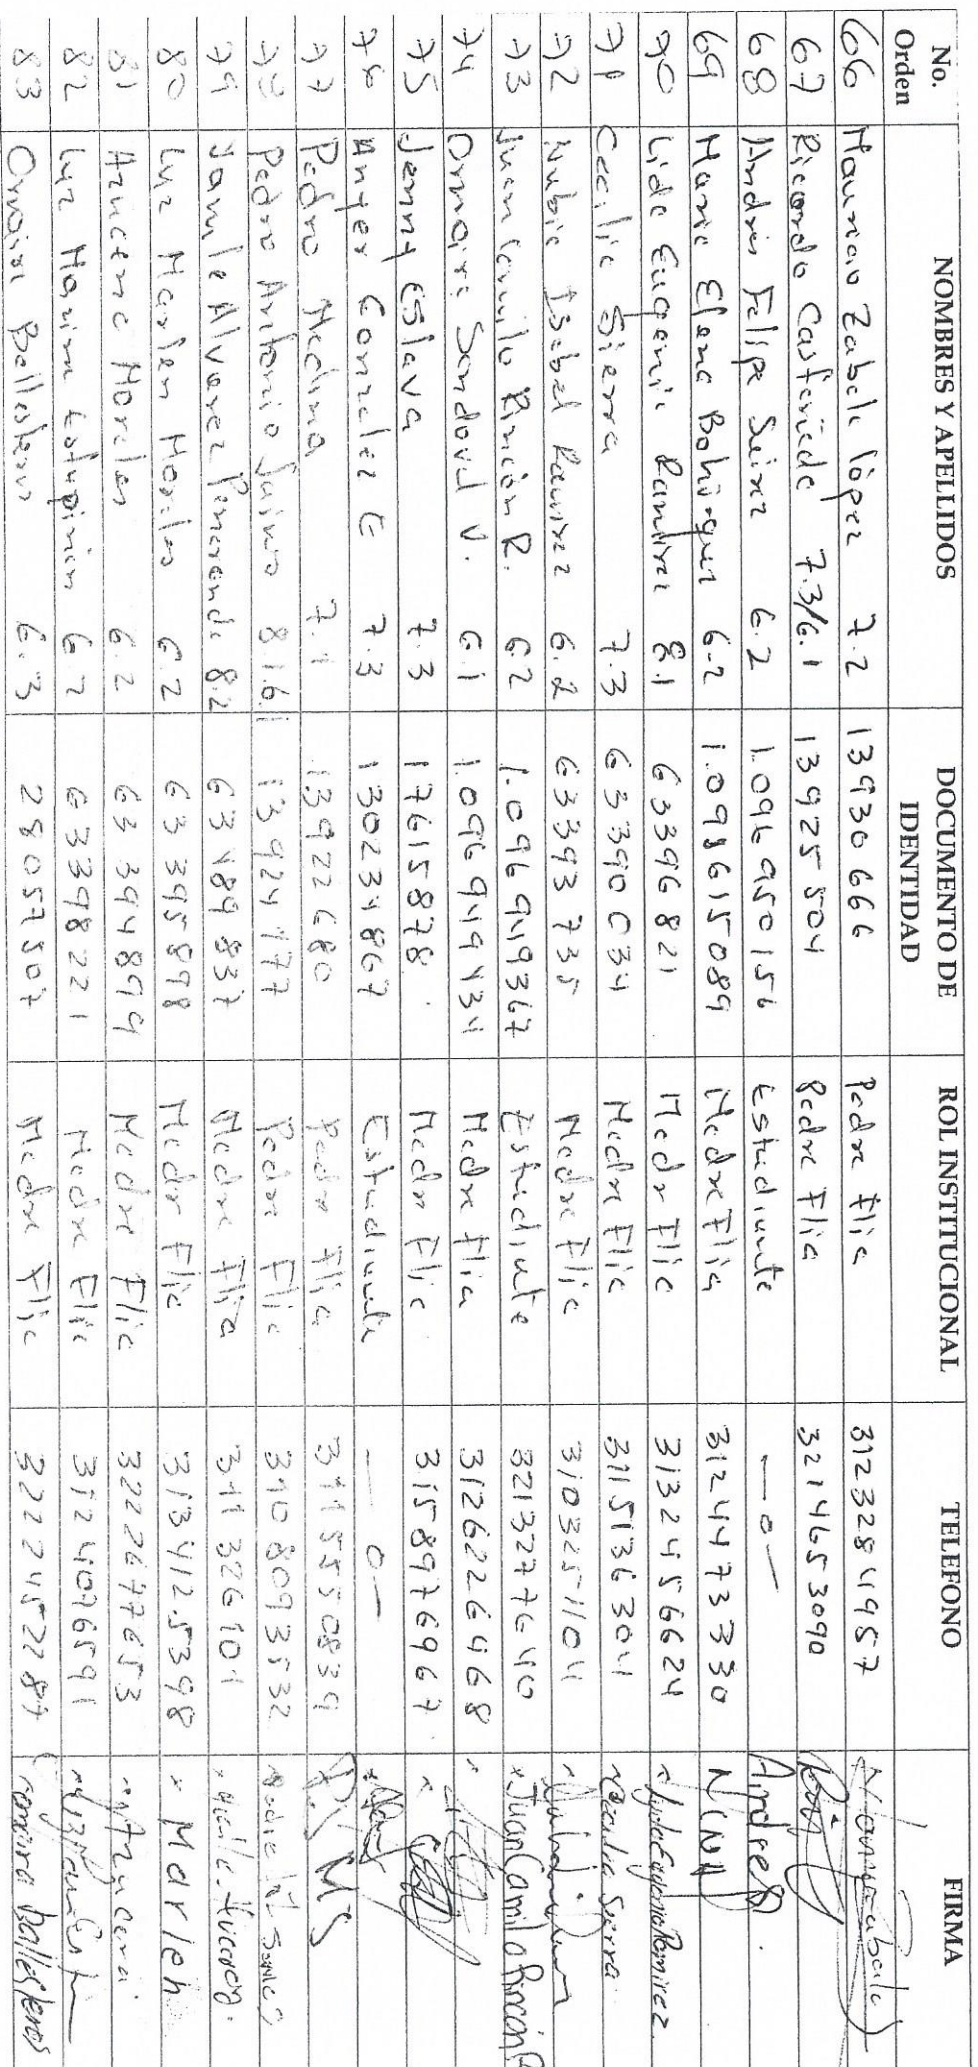 No. Orden NOMBRES Y APELLIDOS DOCUMENTO DE IDENTIDAD ROL INSTITUCIONAL TELEFONO FIRMA
66 Mauricio Zabala López 7.2 13930666 Padre Flia 3123284957
67 Ricardo Castañeda 7.3/6.1 13925504 Padre Flia 3214653090
68 Andrés Felipe 6.2 1.096950156 Estudiante —0— Andres
69 Maria Elena Bohorquez 6.2 1.098615089 Madre Flia 3124473330
70 Lida Eugenia Ramirez 8.1 63396821 Madr Flia 3132456624 Lyda Eugenia Ramirez
71 Cecilia Sierra 7.3 63390034 Madre Flia 3115136304 Cecilia Sierra
72 Nubia Isabel Ramirez 6.2 63393735 Madre Flia 3103251104
73 Juan Camilo Rincón R. 6.2 1.096949367 Estudiante 3213277640 x Juan Camilo Rincón R
74 Omaira Sandoval V. 6.1 1.096949434 Madre Flia 3126226468
75 Jenny Eslava 7.3 17615878 Madre Flia 3158976967
76 Anyer Gonzalez E 7.3 130234867 Estudiante —0—
77 Pedro Medina 7.1 13922680 Padre Flia 3115550839
78 Pedro Antonio 8.1 6.1 13924177 Padre Flia 3108093532
79 Jamile Alvarez Penaranda 8.2 63489837 Madre Flia 311326901
80 Luz Marlen Morales 6.2 63395898 Madr Flia 3134125398 x Marleh
81 Azucena Morales 6.2 63394899 Madre Flia 3222677653 Azucena
82 Luz Marina Estupiñan 6.2 63398221 Madre Flia 3124076591
83 Omaira Ballesteros 6.3 28057507 Madre Flia 3222452287 omaira Ballesteros